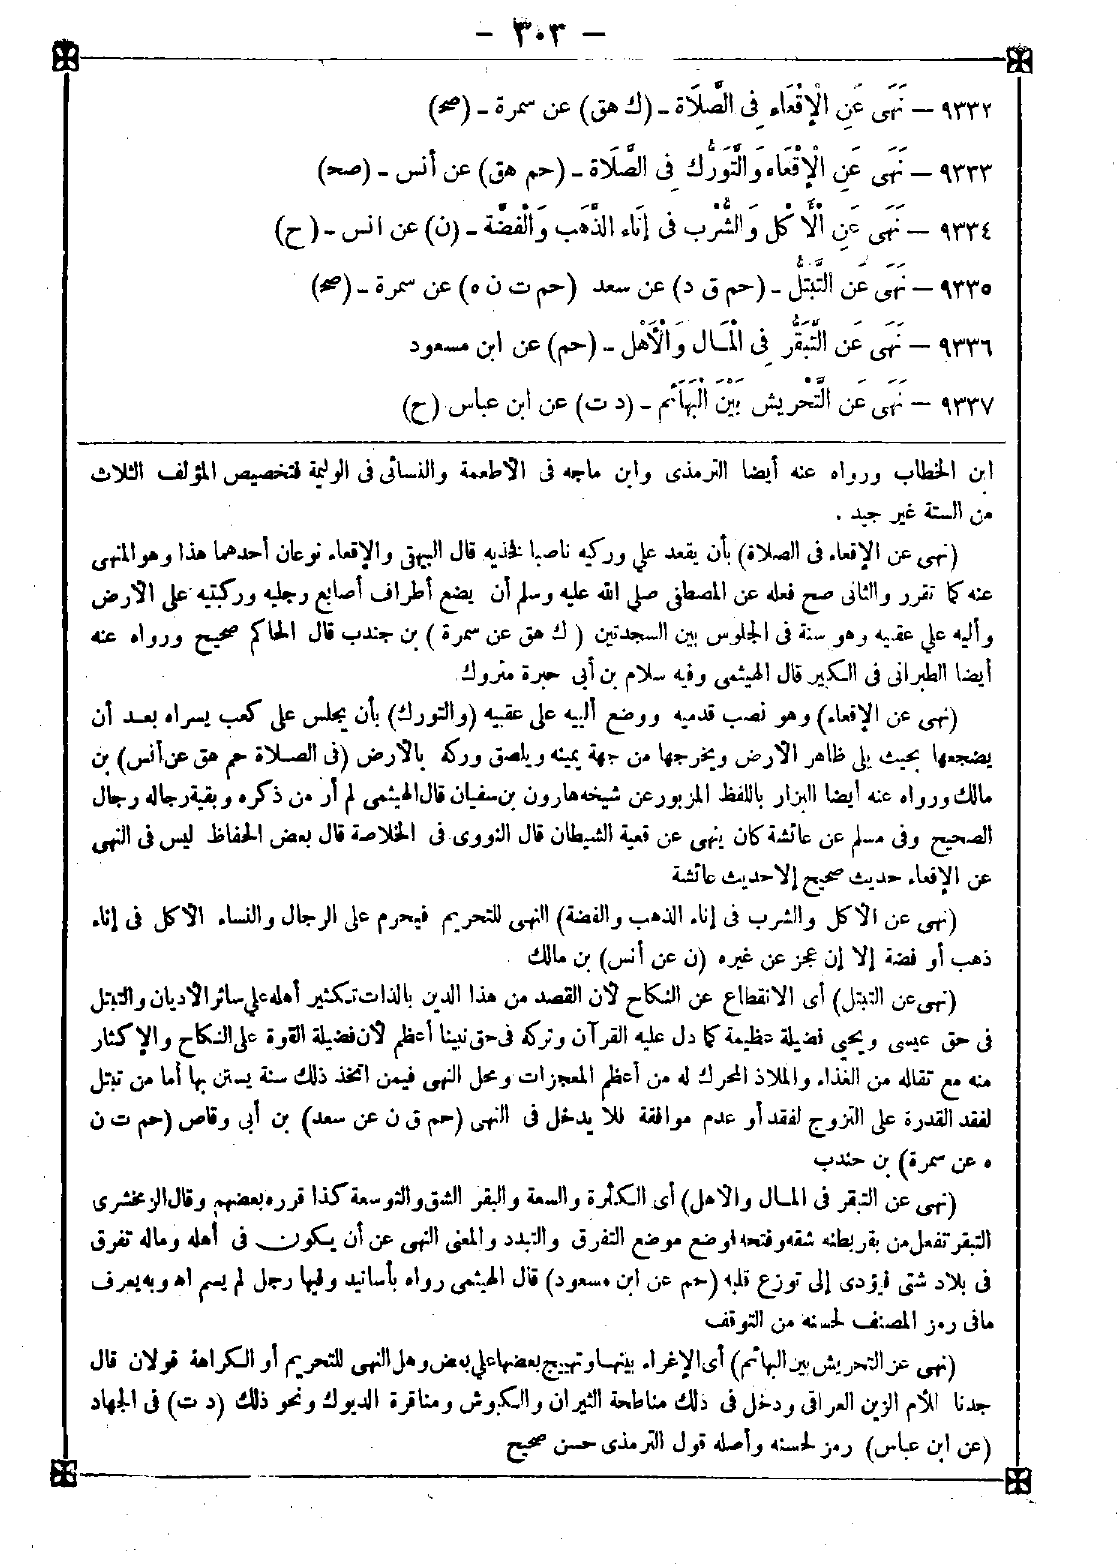 - ٣٠٣ -
٩٣٣٢ — نَهَى عَنِ الْإِقْعَاءِ فِى الصَّلَاة ـ (ك هق) عن سمرة ـ (صح)
٩٣٣٣ — نَهَى عَنِ الْإِقْعَاءِ وَالتَّوَرُّك فِى الصَّلَاة ـ (حم هق) عن أنس ـ (صح)
٩٣٣٤ — نَهَى عَنِ الْأَكْل وَالشُّرْب فى إِنَاء الذَّهَب وَالْفضَّة ـ (ن) عن انس ـ (ح)
٩٣٣٥ — نَهَى عَن التَّبَتُّل ـ (حم ق د) عن سعد (حم ت ن ه) عن سمرة ـ (صح)
٩٣٣٦ — نَهَى عَن التَّبَقُّر فِى الْمَـال وَالْأَهْل ـ (حم) عن ابن مسعود
٩٣٣٧ — نَهَى عَن التَّحْرِيش بَيْنَ الْبَهَائم ـ (د ت) عن ابن عباس (ح)
ابن الخطاب ورواه عنه أيضا الترمذى وابن ماجه فى الأطعمة والنسائى فى الوليمة فتخصيص المؤلف الثلاث
من الستة غير جيد .
(نهى عن الإقعاء فى الصلاة) بأن يقعد على وركيه ناصبا فخذيه قال البيهقى والإقعاء نوعان أحدهما هذا وهو المنهى
عنه كما تقرر والثانى صح فعله عن المصطفى صلى الله عليه وسلم أن يضع أطراف أصابع رجليه وركبتيه على الأرض
وأليه على عقبيه وهو سنة فى الجلوس بين السجدتين (ك هق عن سمرة) بن جندب قال الحاكم صحيح ورواه عنه
أيضا الطبرانى فى الكبير قال الهيثمى وفيه سلام بن أبى حبرة متروك
(نهى عن الإقعاء) وهو نصب قدميه ووضع ألييه على عقبيه (والتورك) بأن يجلس على كعب يسراه بعـد أن
يضجعها بحيث يلى ظاهر الأرض ويخرجها من جهة يمينه ويلصق وركه بالأرض (فى الصـلاة حم هق عن أنس) بن
مالك ورواه عنه أيضا البزار باللفظ المزبور عن شيخه هارون بن سفيان قال الهيثمى لم أر من ذكره وبقية رجاله رجال
الصحيح وفى مسلم عن عائشة كان ينهى عن قعية الشيطان قال النووى فى الخلاصة قال بعض الحفاظ ليس فى النهى
عن الإقعاء حديث صحيح إلا حديث عائشة
(نهى عن الأكل والشرب فى إناء الذهب والفضة) النهى للتحريم فيحرم على الرجال والنساء الأكل فى إناء
ذهب أو فضة إلا إن عجز عن غيره (ن عن أنس) بن مالك
(نهى عن التبتل) أى الانقطاع عن النكاح لأن القصد من هذا الدين بالذات تكثير أهله على سائر الأديان والتبتل
فى حق عيسى ويحيى فضيلة عظيمة كما دل عليه القرآن وتركه فى حق نبينا أعظم لأن فضيلة القوة على النكاح والإكثار
منه مع تقاله من الغذاء والملاذ المحرك له من أعظم المعجزات ومحل النهى فيمن اتخذ ذلك سنة يستن بها أما من تبتل
لفقد القدرة على التزوج لفقد أو عدم موافقة فلا يدخل فى النهى (حم ق ن عن سعد) بن أبى وقاص (حم ت ن
ه عن سمرة) بن جندب
(نهى عن التبقر فى المـال والأهل) أى الكثرة والسعة والبقر الشق والتوسعة كذا قرره بعضهم وقال الزمخشرى
التبقر تفعل من بقر بطنه شقه وفتحه فوضع موضع التفرق والتبدد والمعنى النهى عن أن يكون فى أهله وماله تفرق
فى بلاد شتى فيؤدى إلى توزع قلبه (حم عن ابن مسعود) قال الهيثمى رواه بأسانيد وفيها رجل لم يسم اه وبه يعرف
مافى رمز المصنف لحسنه من التوقف
(نهى عن التحريش بين البهائم) أى الإغراء بينها وتهييج بعضها على بعض وهل النهى للتحريم أو الكراهة قولان قال
جدنا للأم الزين العراقى ودخل فى ذلك مناطحة الثيران والكبوش ومناقرة الديوك ونحو ذلك (د ت) فى الجهاد
(عن ابن عباس) رمز لحسنه وأصله قول الترمذى حسن صحيح